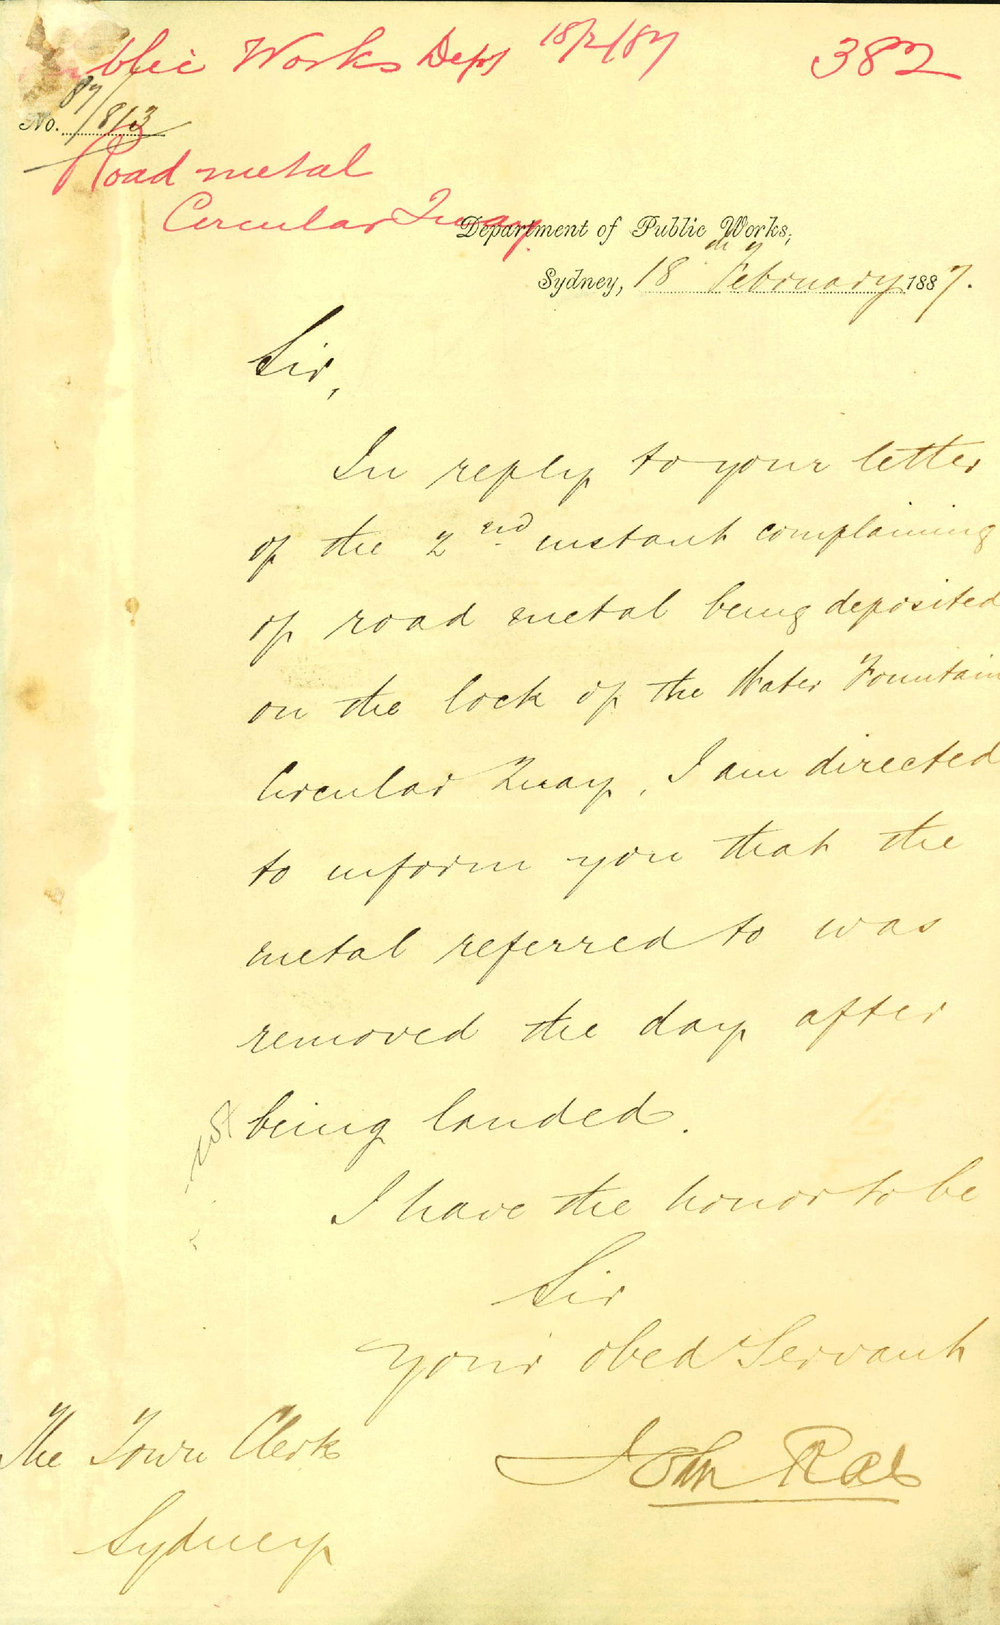 Public Works Dept 18/2/87
382
No. 87/813
Road metal
Circular Quay.
Department of Public Works,
Sydney, 18th February 1887.
Sir,
In reply to your letter
of the 2nd instant complaining
of road metal being deposited
on the lock of the Water Fountain
Circular Quay, I am directed
to inform you that the
metal referred to was
removed the day after
being landed.
I have the honor to be
Sir
Your obed Servant
John Rae
The Town Clerk
Sydney